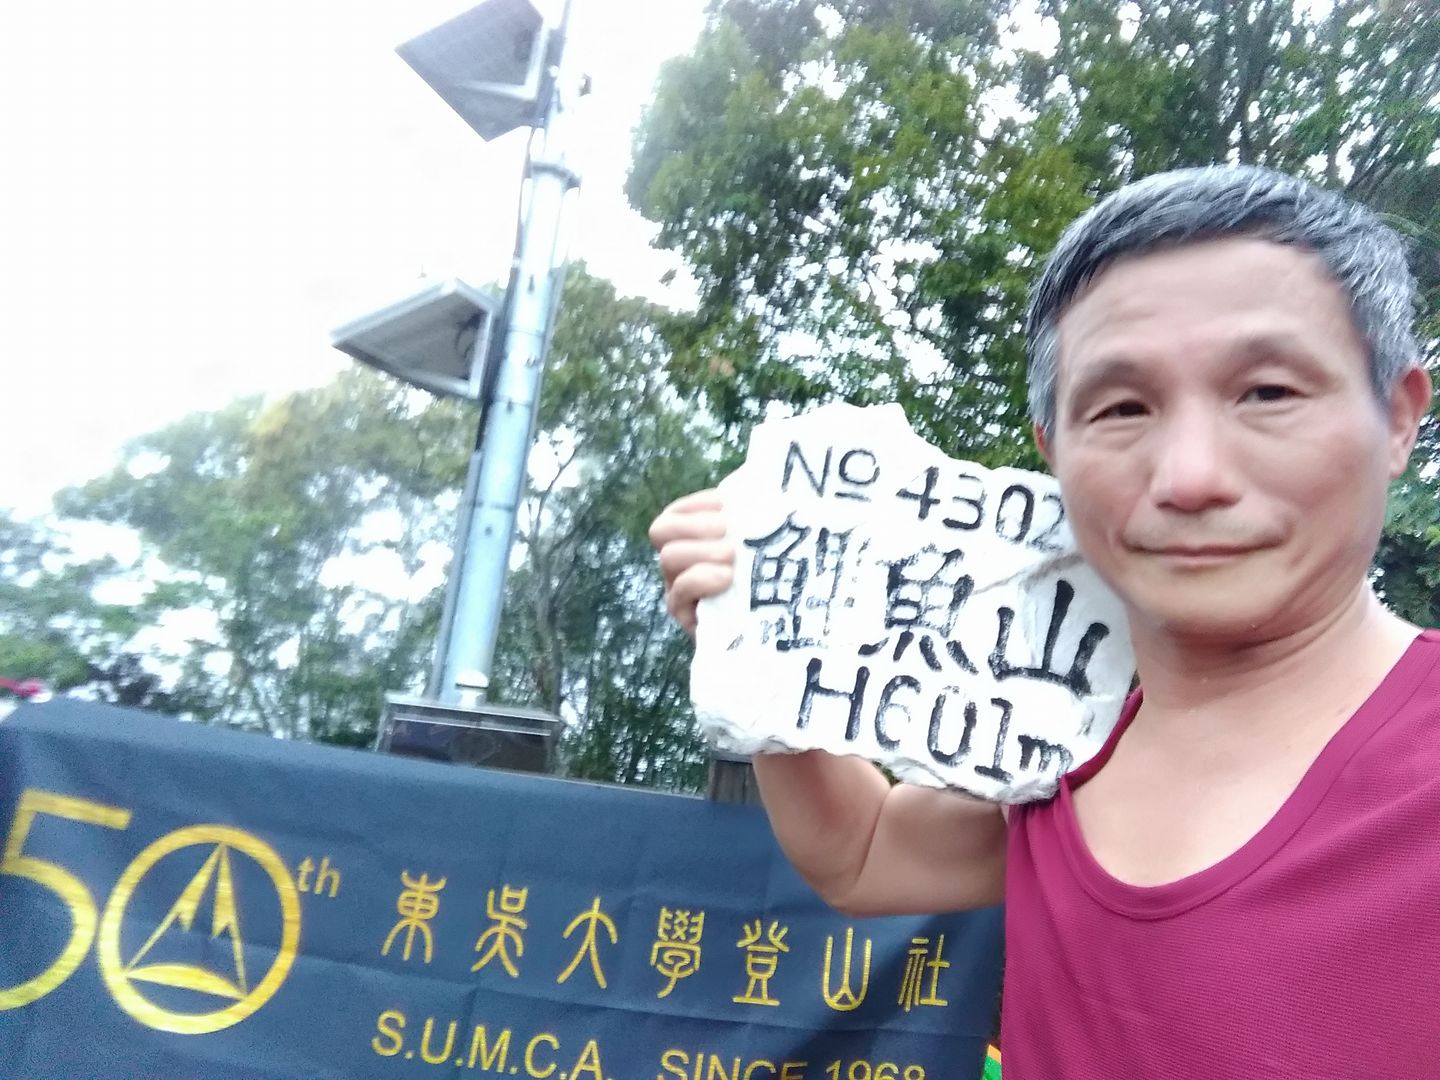 No 4302
鯉魚山
H601m
50th 東吳大學登山社
S.U.M.C.A. SINCE 1968